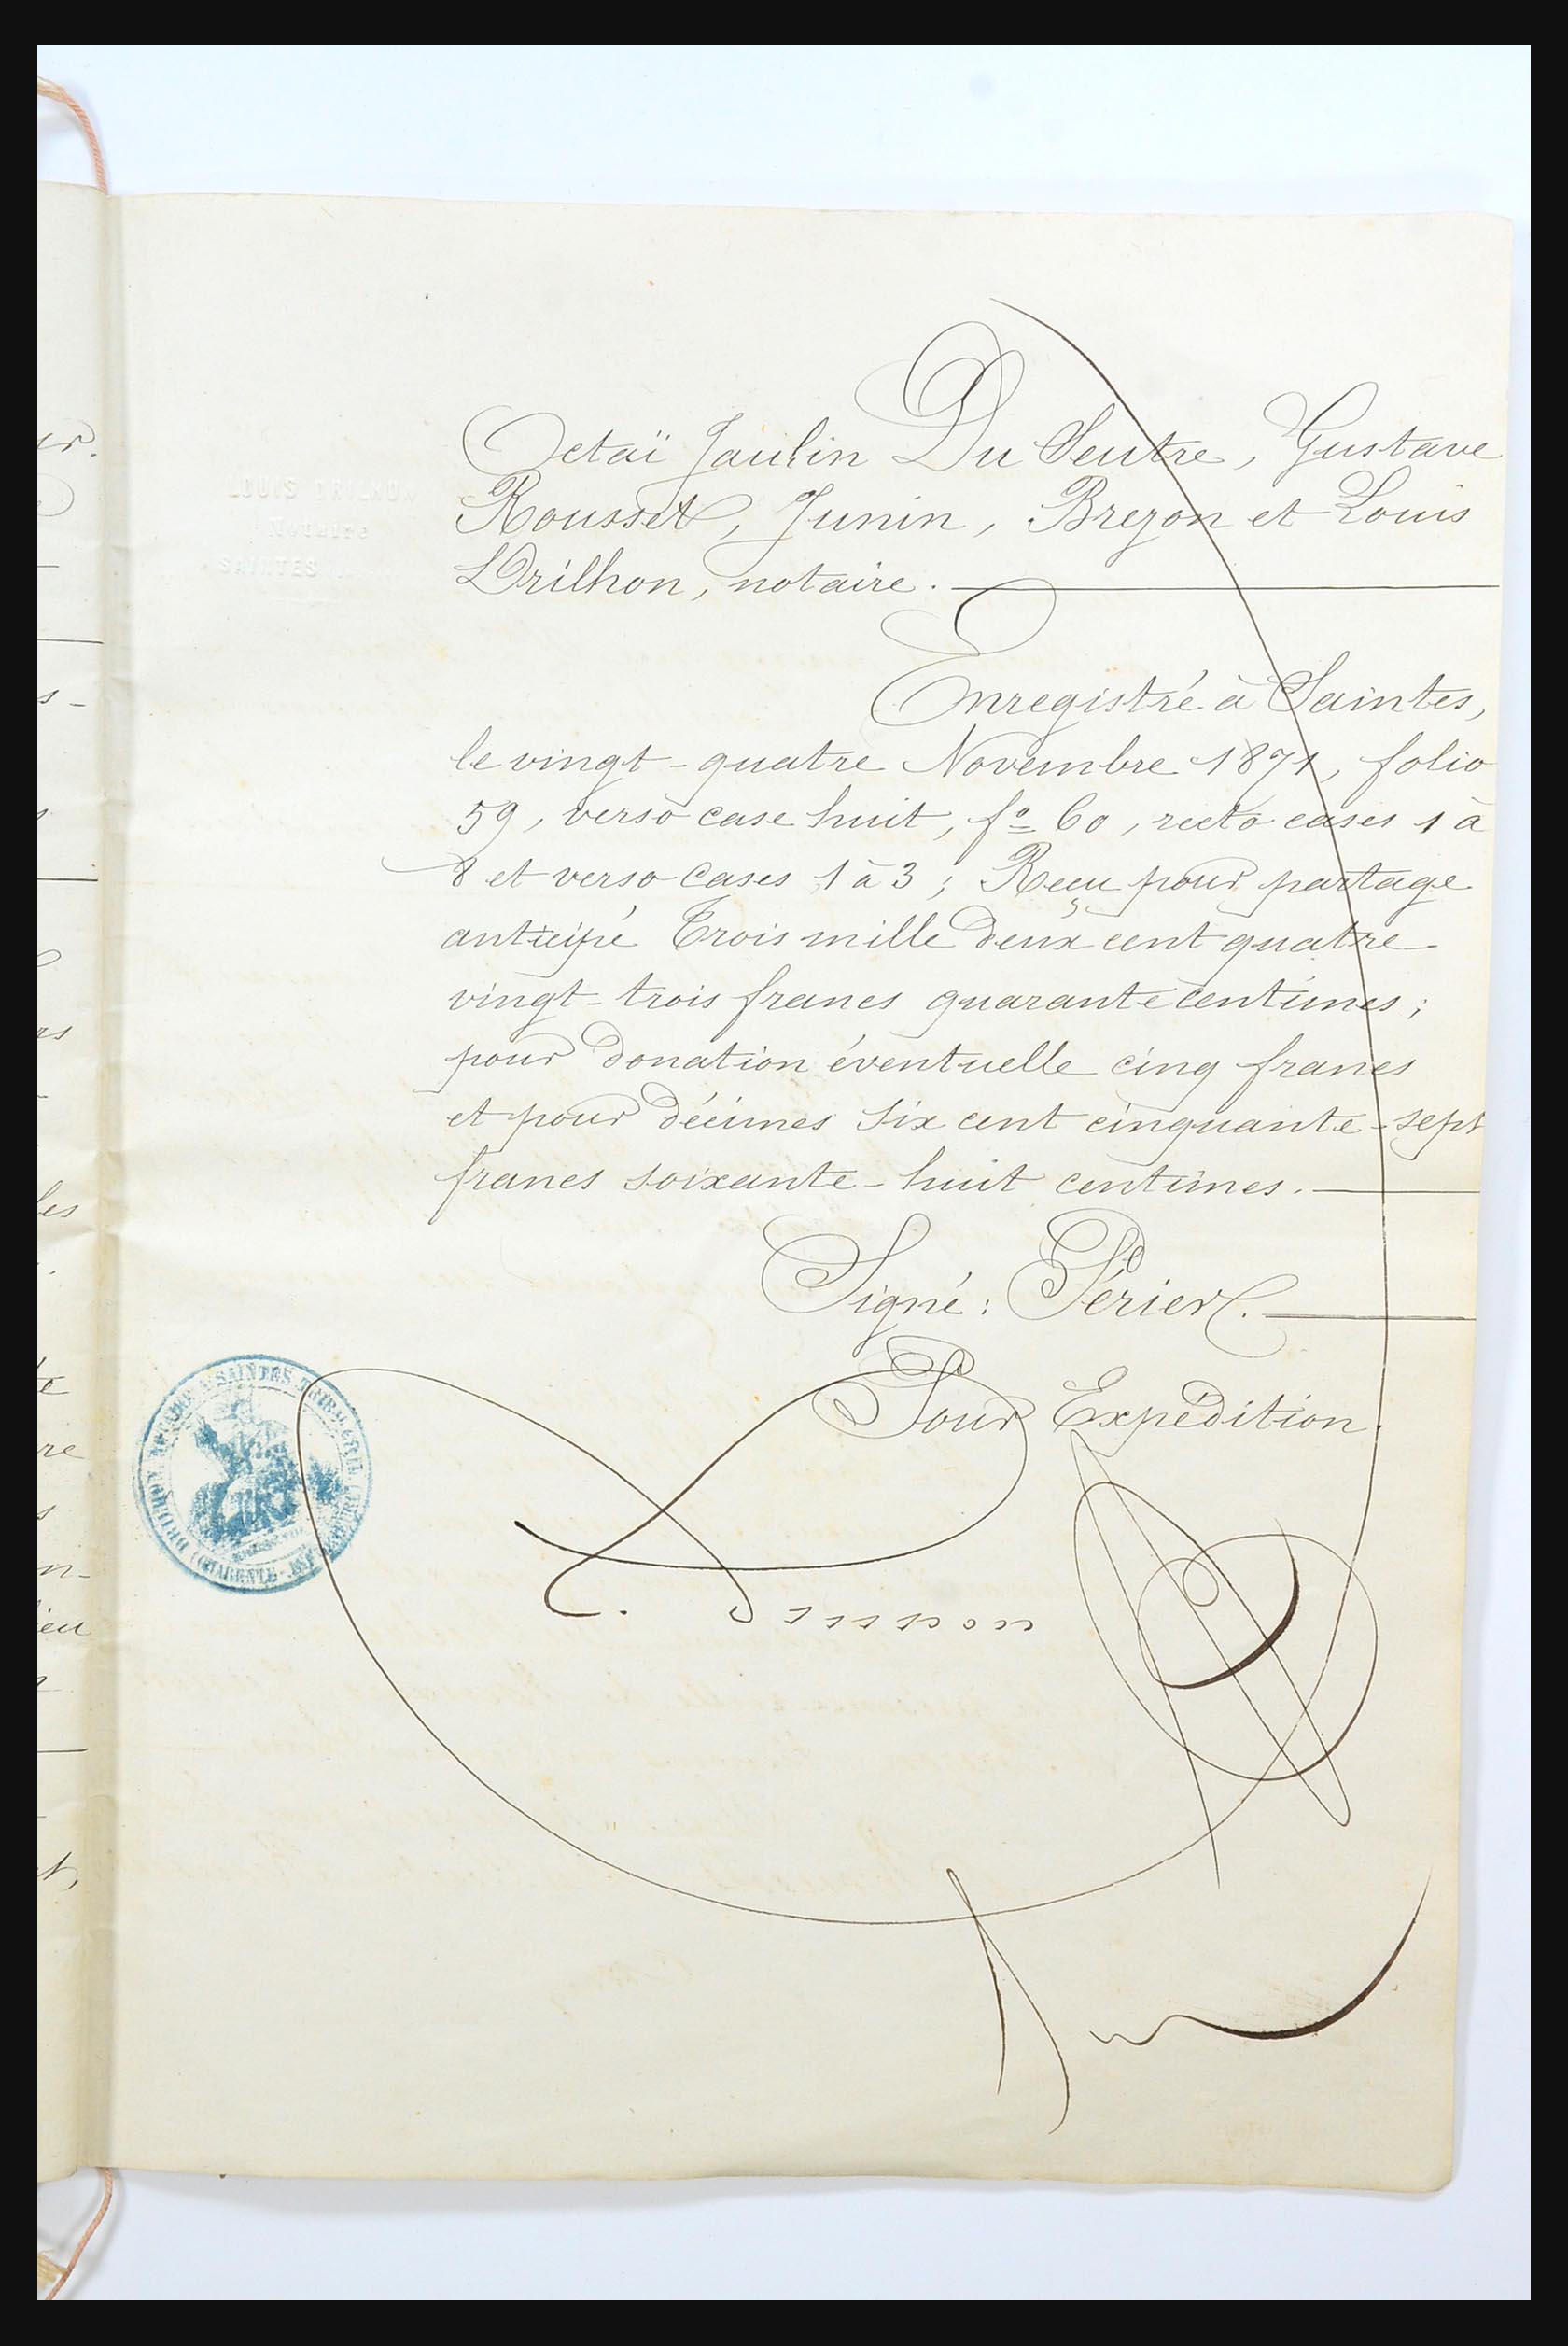 Octaï Jaulin Du Seutre, Gustave
Rousset, Junin, Brezon et Louis
Drilhon, notaire.
LOUIS DRILHON
Notaire
SAINTES
Enregistré à Saintes,
le vingt-quatre Novembre 1871, folio
59, verso case huit, fº 60, recto cases 1 à
8 et verso cases 1 à 3; Reçu pour partage
anticipé Trois mille deux cent quatre
vingt-trois francs quarante centimes;
pour donation éventuelle cinq francs
et pour décimes six cent cinquante-sept
francs soixante-huit centimes.
Signé: Périer.
Pour Expédition.